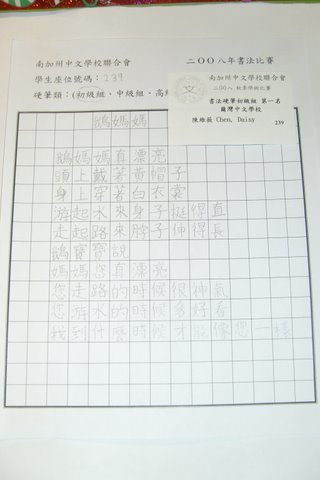 南加州中文學校聯合會
學生座位號碼：239
硬筆類：(初級組、中級組、高
二OO八年書法比賽
南加州中文學校聯合會
二OO八 秋季學術比賽
書法硬筆初級組 第一名
爾灣中文學校
陳維薇 Chen, Daisy 239
文
鵝媽媽
鵝媽媽真漂亮
頭上戴著黃帽子
身上穿著白衣裳
游起水來身子挺得直
走起路來脖子伸得長
鵝寶寶說
媽媽您真漂亮
您走路的時候很神氣
您游水的時候多好看
我到什麼時候才能像您一樣